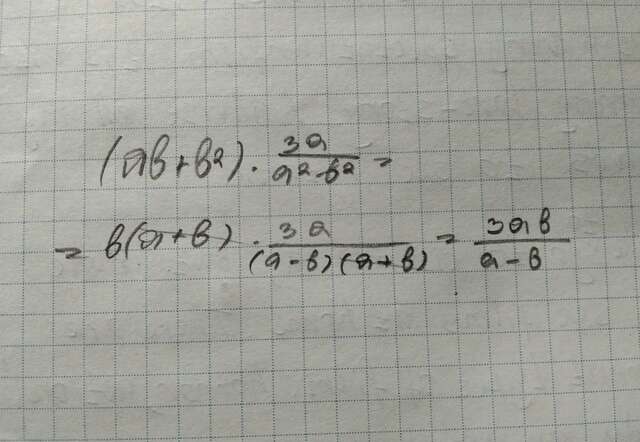 (ab+b²)·3a/(a²-b²)=
=b(a+b)·3a/((a-b)(a+b))=3ab/(a-b)